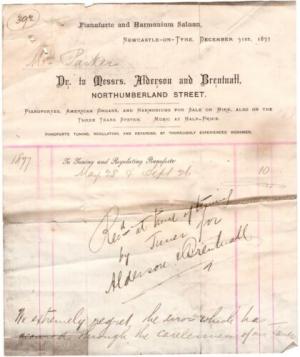 392
Pianoforte and Harmonium Saloon,
Newcastle-on-Tyne, December 31st, 1877
Mr Parker
Dr. to Messrs. Alderson and Brentnall,
NORTHUMBERLAND STREET.
Pianofortes, American Organs, and Harmoniums for Sale or Hire, also on the
Three Years System. Music at Half-Price.
PIANOFORTE TUNING, REGULATING, AND REPAIRING, BY THOROUGHLY EXPERIENCED WORKMEN.
1877 To Tuning and Regulating Pianoforte
May 28 & Sept 26 10
Recd at time of tuning
by Tuner for
Alderson & Brentnall
We extremely regret the error which has
through the carelessness of our